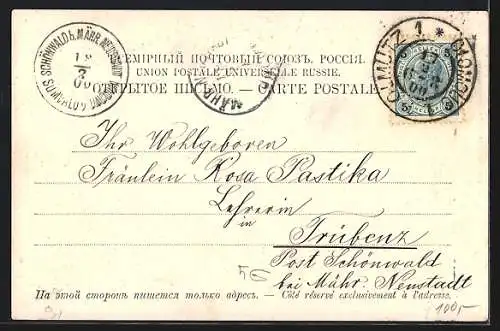 SCHÖNWALD b. MÄHR. NEUSTADT
18
3
00
ВСЕМІРНЫЙ ПОЧТОВЫЙ СОЮЗЪ. РОССІЯ.
UNION POSTALE UNIVERSELLE RUSSIE.
ОТКРЫТОЕ ПИСЬМО. — CARTE POSTALE
MÄHR.
OLMÜTZ 1. * OLOMOUC
17
00
Ihr Wohlgeboren
Fräulein Rosa Pastika
Lehrerin
in
Trübenz
Post Schönwald
bei Mähr. Neustadt
На этой сторонѣ пишется только адресъ. — Côté réservé exclusivement à l'adresse.
100,-